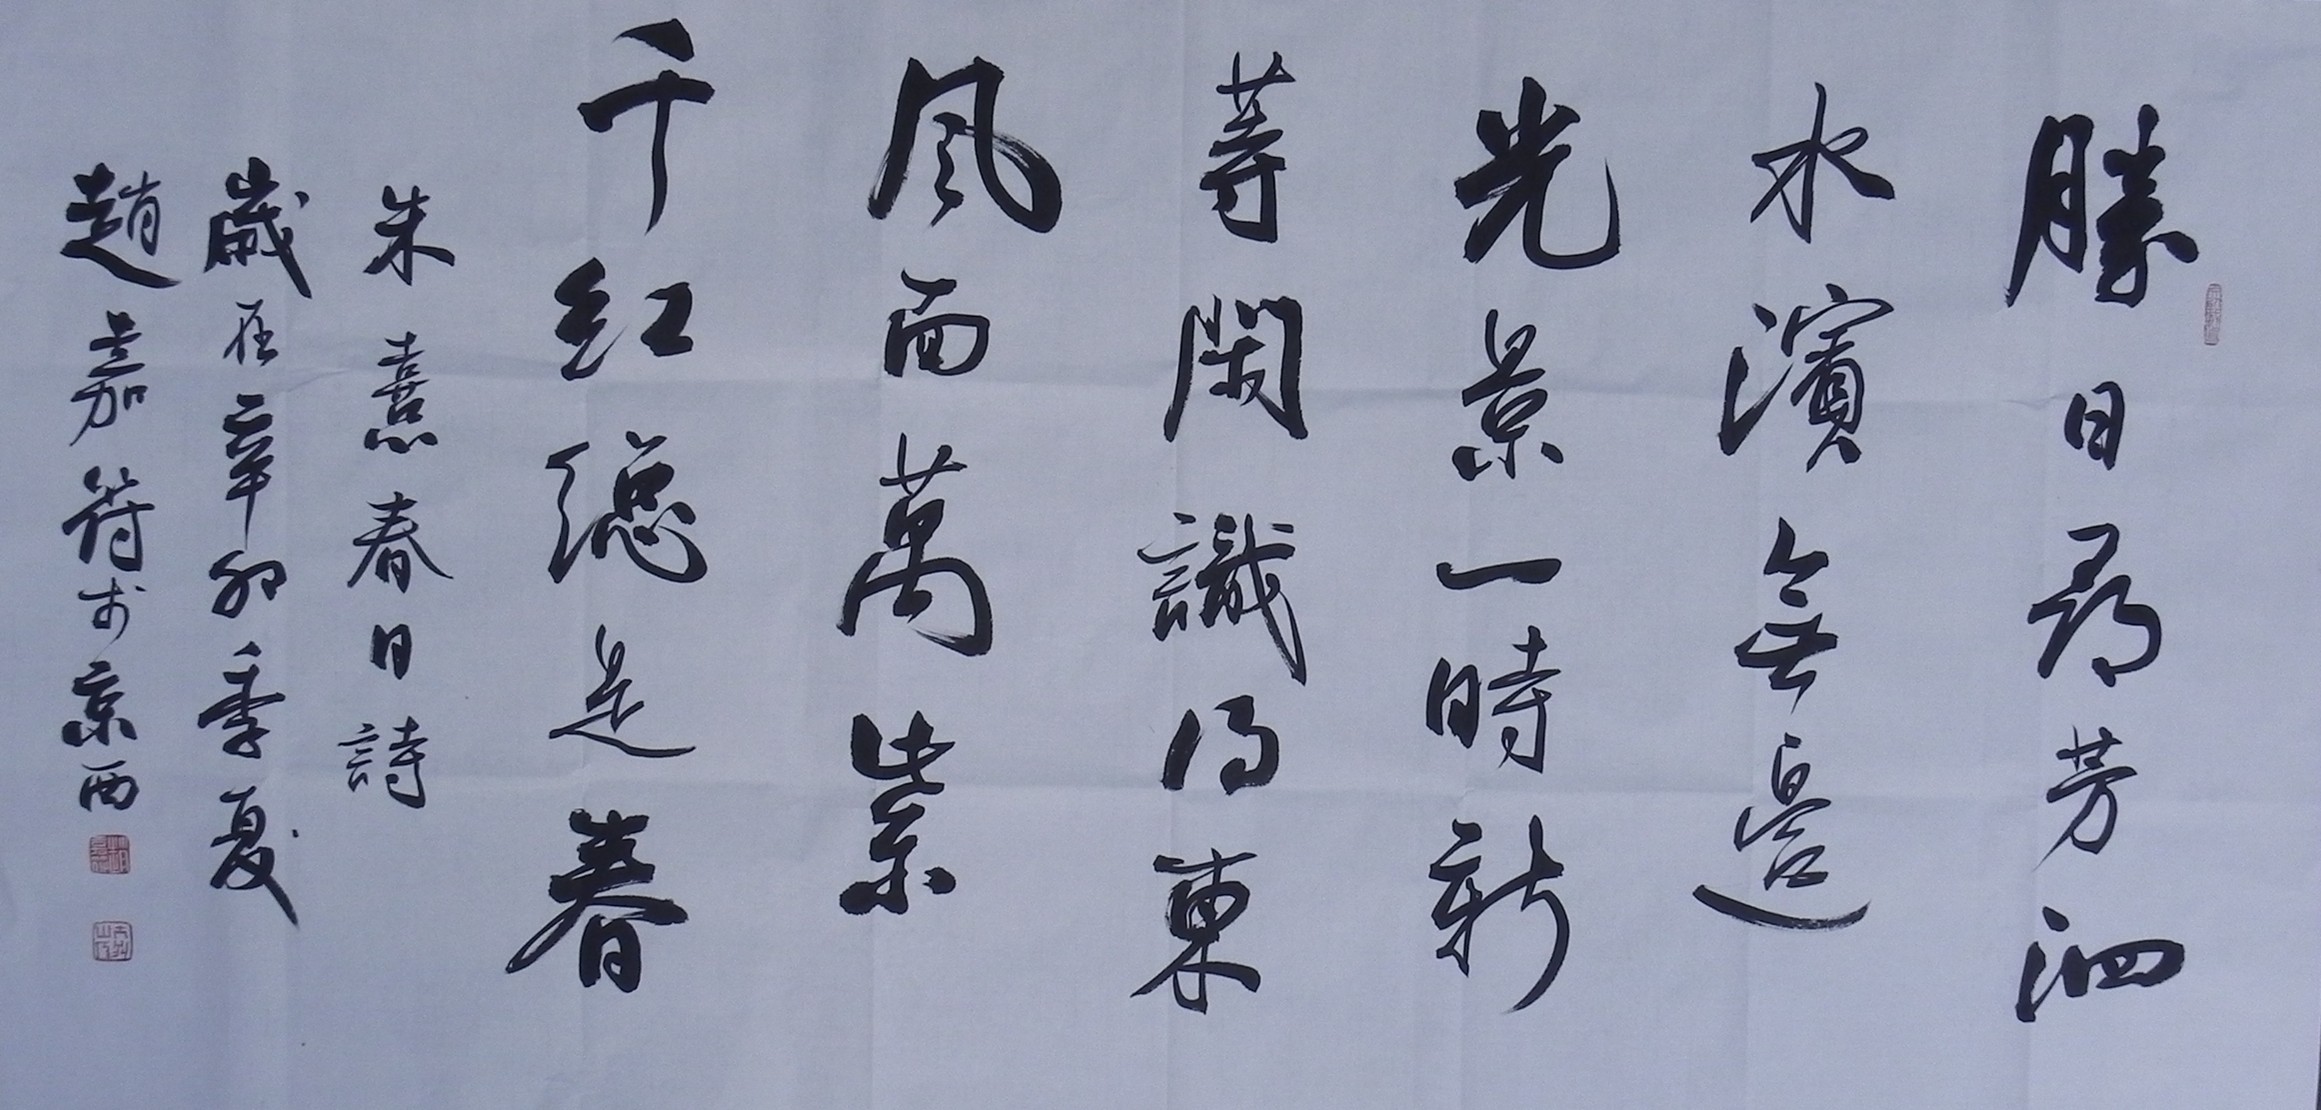 勝日尋芳泗
水濱無邊
光景一時新
等閑識得東
風面萬紫
千紅總是春
朱熹春日詩
歲在辛卯季夏
趙嘉符於京西